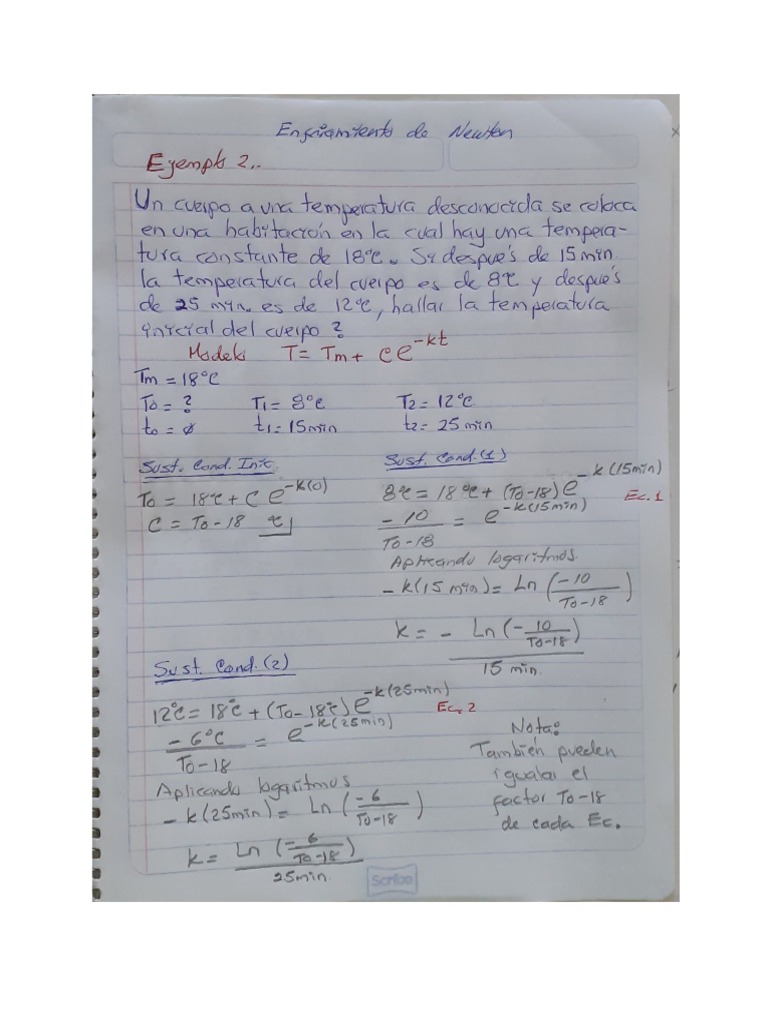 Enfriamiento de Newton
Ejemplo 2..
Un cuerpo a una temperatura desconocida se coloca
en una habitación en la cual hay una tempera-
tura constante de 18°C. Si después de 15 min
la temperatura del cuerpo es de 8°C y después
de 25 min. es de 12°C, hallar la temperatura
inicial del cuerpo?
Modelo T = Tm + Ce^-kt
Tm = 18°C
To = ? T1 = 8°C T2 = 12°C
to = ø t1 = 15min t2 = 25 min
Sust. Cond. Inic.
To = 18°C + C e^-k(0)
C = To - 18 °C
Sust. Cond. (1)
8°C = 18°C + (To-18) e^-k(15min) Ec. 1
-10 / To-18 = e^-k(15min)
Aplicando logaritmos.
-k(15 min) = Ln (-10 / To-18)
k = - Ln (-10 / To-18) / 15 min.
Sust. Cond. (2)
12°C = 18°C + (To-18°C) e^-k(25min) Ec. 2
-6°C / To-18 = e^-k(25min)
Aplicando logaritmos
-k(25min) = Ln (-6 / To-18)
k = Ln (-6 / To-18) / 25min.
Nota:
También pueden
igualar el
factor To-18
de cada Ec.
Scribe